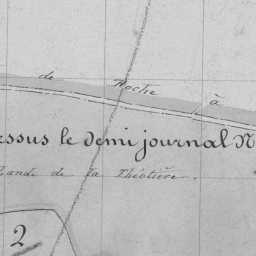 de Roche à
essus le demi journal N
Land. de la Théotière.
2